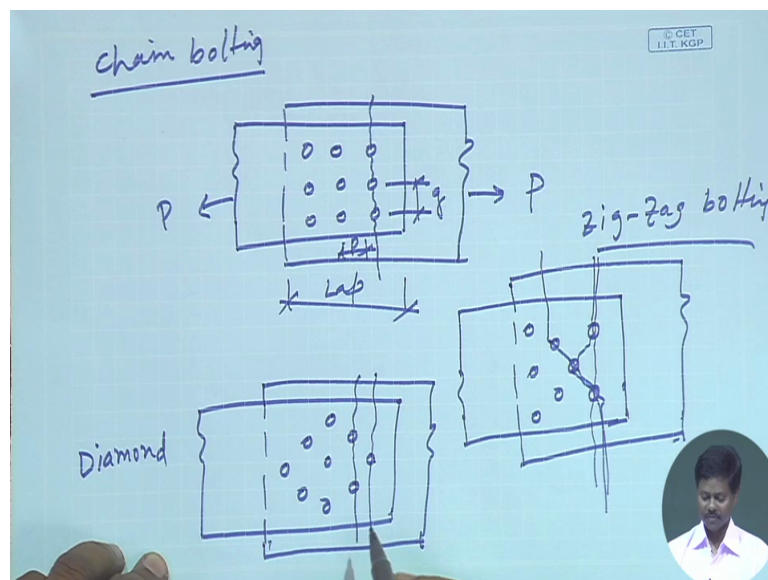 Chain bolting
© CET
I.I.T. KGP
P
P
g
P
Lap
Zig-Zag bolting
Diamond